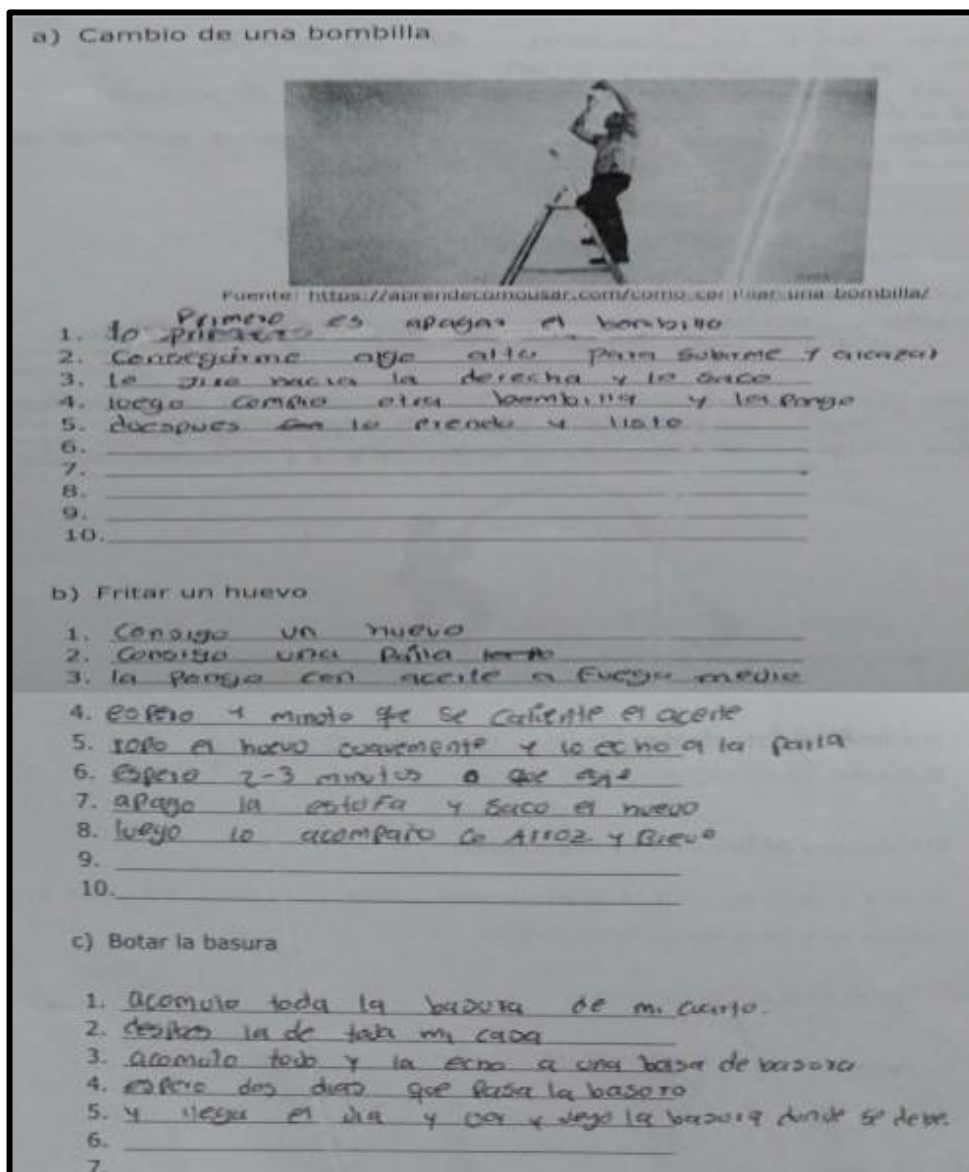 a) Cambio de una bombilla
Fuente: https://aprendecomousar.com/como-cambiar-una-bombilla/
1. lo Primero es apagar el bombillo
2. Conseguirme algo alto para subirme y alcazar
3. lo giro hacia la derecha y lo saco
4. luego compro otra bombilla y la pongo
5. docspues lo prendo y listo
6.
7.
8.
9.
10.
b) Fritar un huevo
1. Consigo un huevo
2. Consigo una Paila
3. la Pongo con aceite a Fuego medio
4. espero 1 minoto qe se caliente el aceite
5. ropo el huevo cuavemente y lo echo a la paila
6. espero 2-3 minutos a que
7. apago la estofa y saco el huevo
8. luego lo acompaño co Arroz y
9.
10.
c) Botar la basura
1. acomulo toda la basura de mi cuarto.
2. la de toda mi casa
3. acomulo todo y la echo a una basa de basora
4. espero dos dias que pasa la basoro
5. y llega el dia y y dejo la basura donde se debe.
6.
7